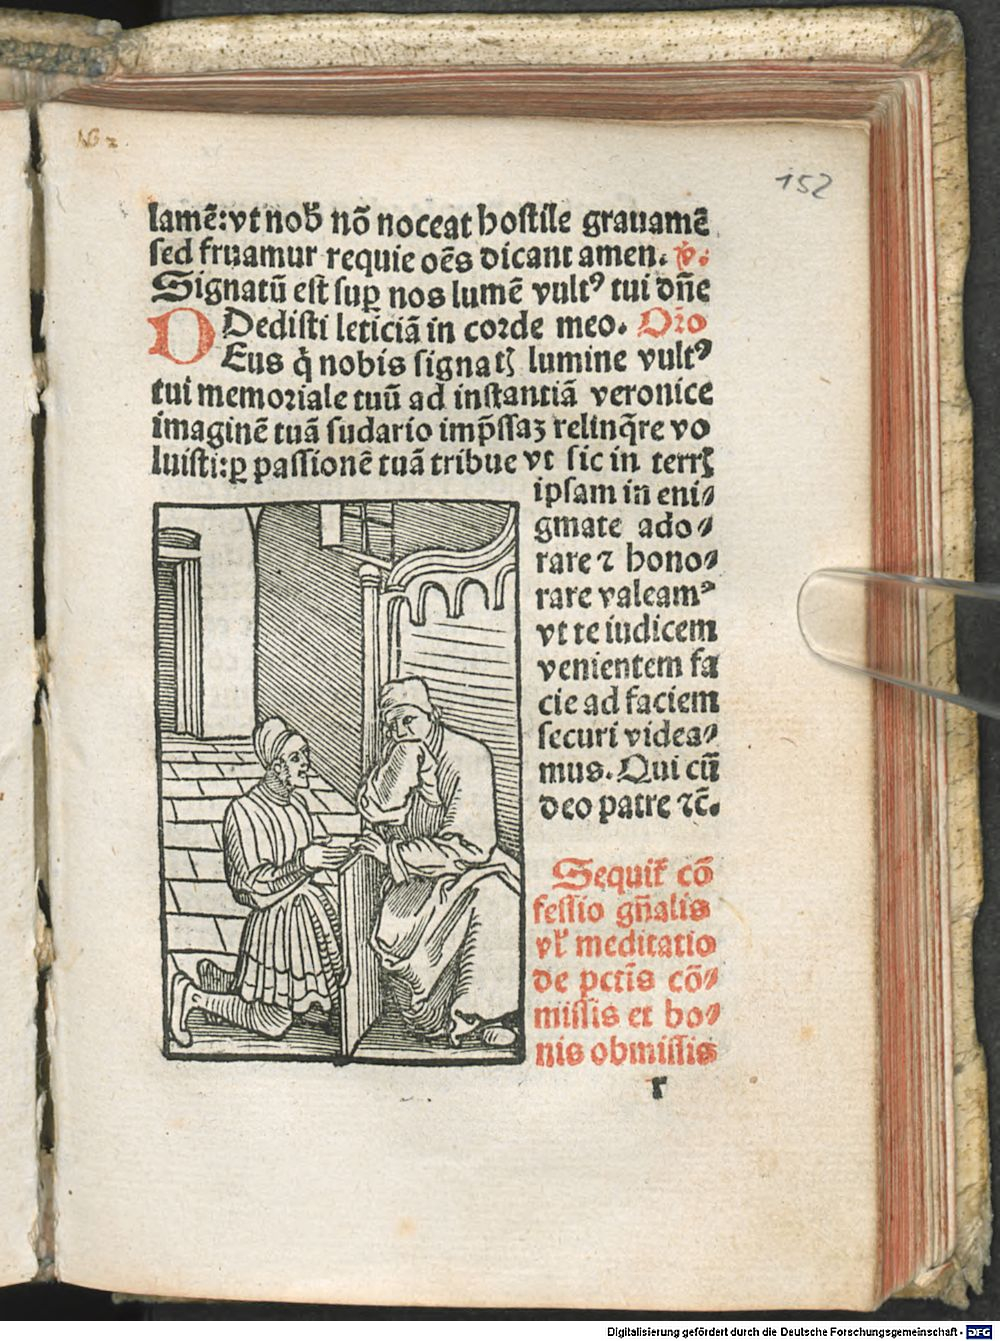 162
152
lamē:vt nob̄ nō noceat hostile grauamē
sed fruamur requie oēs dicant amen. ℣.
Signatū est sup̱ nos lumē vultꝰ tui dn̄e
Dedisti leticiā in corde meo. Or̄o
DEus q̇ nobis signatꝭ lumine vultꝰ
tui memoriale tuū ad instantiā veronice
imaginē tuā sudario imp̄ssaꝫ relinq̄re vo
luisti:ꝑ passionē tuā tribue vt sic in terrꝭ
ipsam in eni⸗
gmate ado⸗
rare ⁊ hono⸗
rare valeamꝰ
vt te iudicem
venientem fa
cie ad faciem
securi videa⸗
mus. Qui cū
deo patre ⁊c̄.
Sequit̄ cō
fessio gn̄alis
vl̄ meditatio
de pct̄is cō⸗
missis et bo⸗
nis obmissis
r
Digitalisierung gefördert durch die Deutsche Forschungsgemeinschaft - DFG